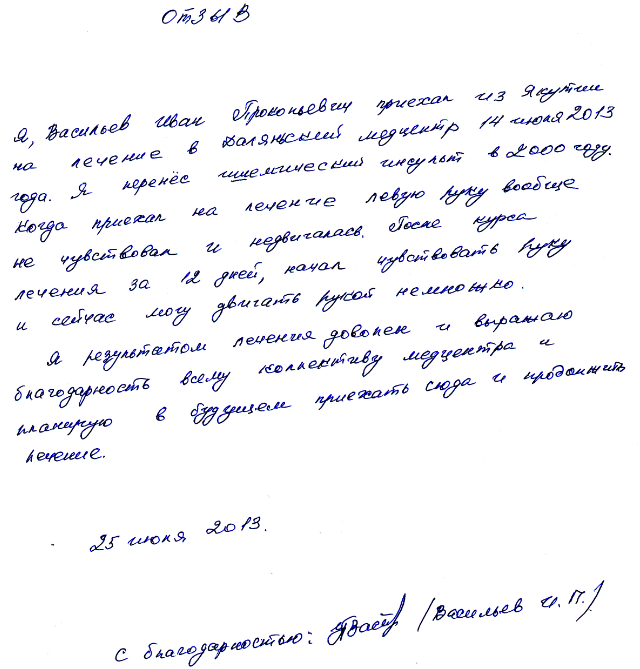 Отзыв
Я, Васильев Иван Прокопьевич приехал из Якутии
на лечение в Даляньский медцентр 14 июня 2013
года. Я перенёс ишемический инсульт в 2000 году.
Когда приехал на лечение левую руку вообще
не чувствовал и недвигалась. После курса
лечения за 12 дней, начал чувствовать руку
и сейчас могу двигать рукой немножно.
Я результатом лечения доволен и выражаю
благодарность всему коллективу медцентра и
планирую в будущем приехать сюда и продолжить
лечение.
25 июня 2013.
с благодарностью: (Васильев И.П.)